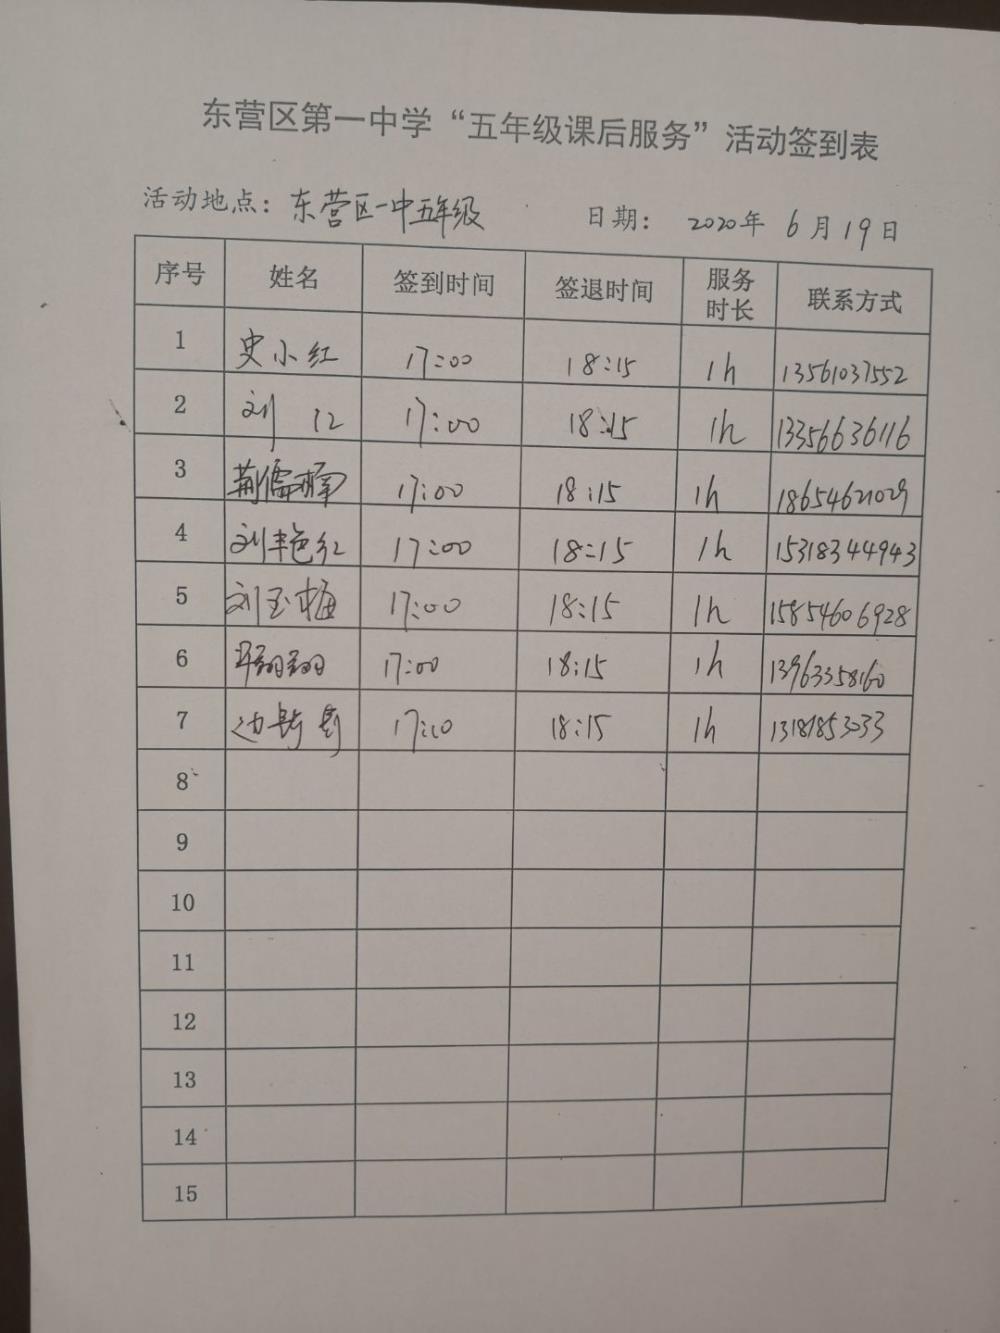 东营区第一中学“五年级课后服务”活动签到表
活动地点：东营区一中五年级 日期： 2020年 6月19日
序号 姓名 签到时间 签退时间 服务时长 联系方式
1 史小红 17:00 18:15 1h 13561037552
2 刘 17:00 18:15 1h 13356636116
3 荆儒楠 17:00 18:15 1h 18654621029
4 刘艳红 17:00 18:15 1h 15318344943
5 刘玉梅 17:00 18:15 1h 15854606928
6 翔翔 17:00 18:15 1h 13963358160
7 边 18:15 1h 13181853033
8
9
10
11
12
13
14
15